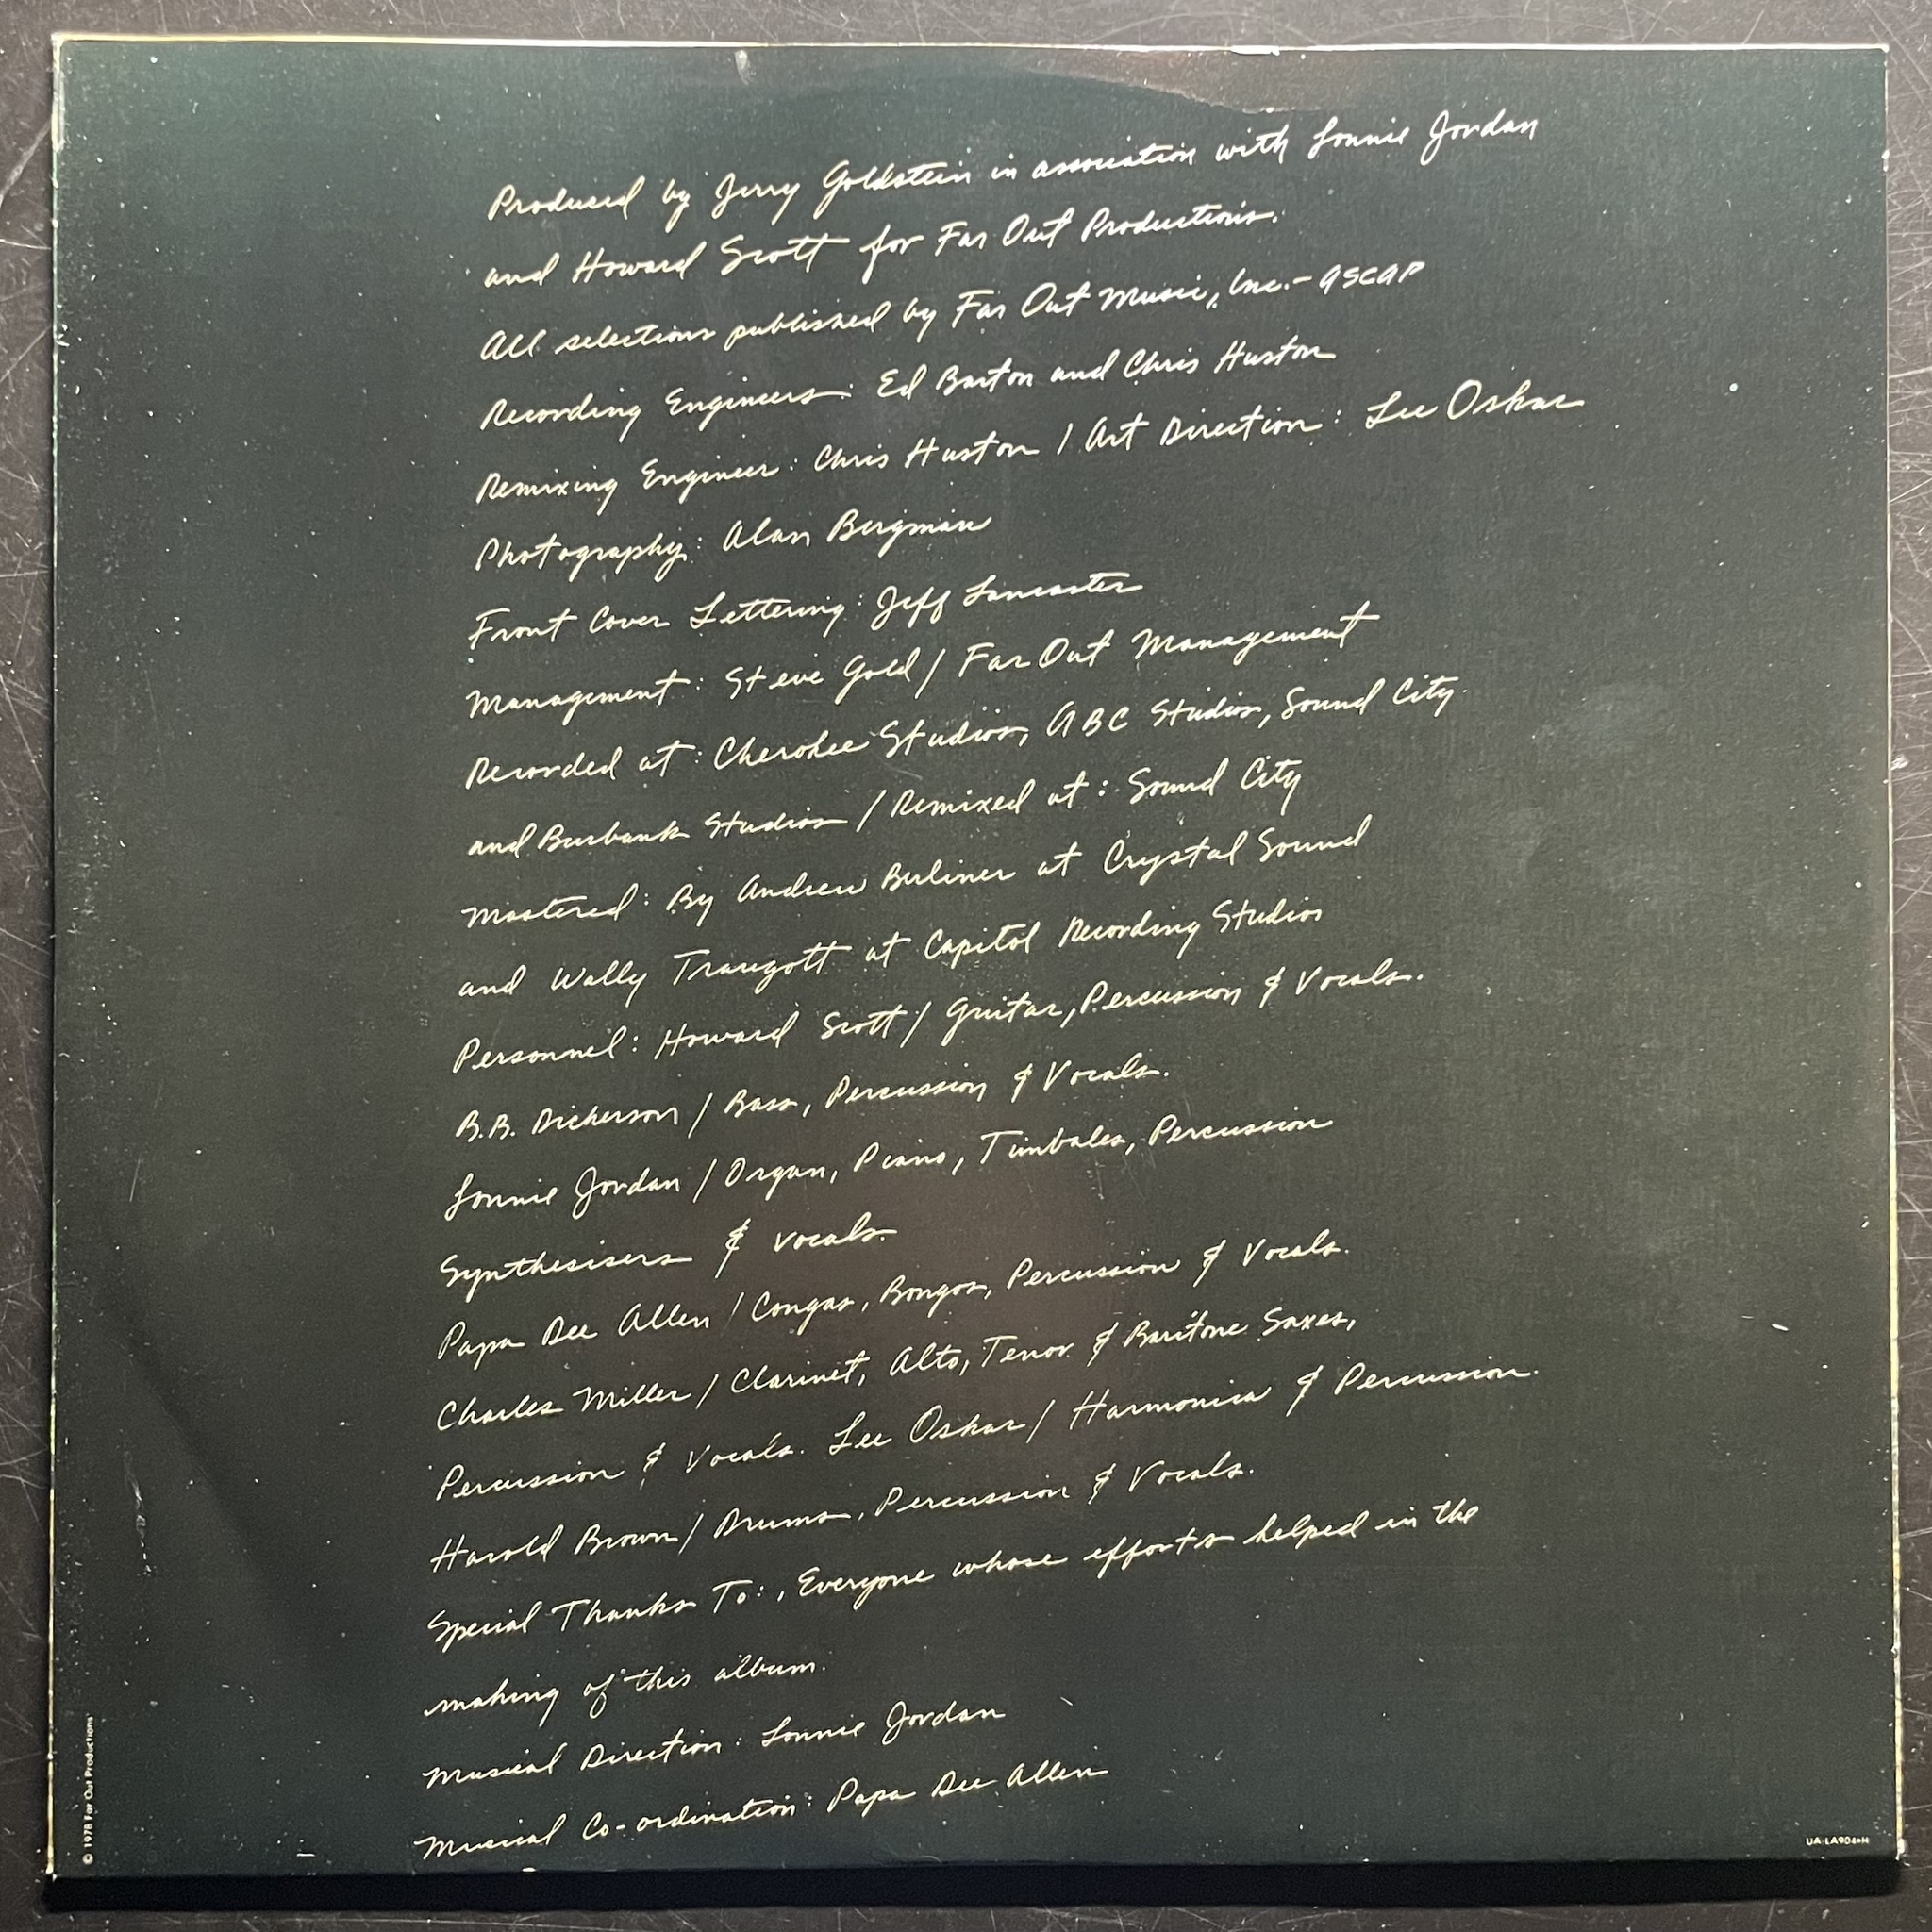 Produced by Jerry Goldstein in association with Lonnie Jordan
and Howard Scott for Far Out Productions.
All selections published by Far Out Music, Inc.- ASCAP
Recording Engineers: Ed Barton and Chris Huston
Remixing Engineer: Chris Huston / Art Direction: Lee Oskar
Photography: Alan Bergman
Front Cover Lettering: Jeff Lancaster
Management: Steve Gold / Far Out Management
Recorded at: Cherokee Studios, ABC Studios, Sound City
and Burbank Studios / Remixed at: Sound City
Mastered: By Andrew Berliner at Crystal Sound
and Wally Traugott at Capitol Recording Studios
Personnel: Howard Scott / Guitar, Percussion & Vocals.
B.B. Dickerson / Bass, Percussion & Vocals.
Lonnie Jordan / Organ, Piano, Timbales, Percussion
Synthesisers & vocals.
Papa Dee Allen / Congas, Bongos, Percussion & Vocals.
Charles Miller / Clarinet, Alto, Tenor & Baritone Saxes,
Percussion & Vocals. Lee Oskar / Harmonica & Percussion.
Harold Brown / Drums, Percussion & Vocals.
Special Thanks To:, Everyone whose efforts helped in the
making of this album.
Musical Direction: Lonnie Jordan
Musical Co-ordination: Papa Dee Allen
© 1978 Far Out Productions
UA-LA904-H